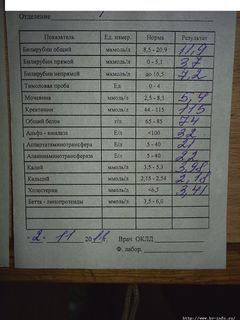 Отделение
Показатель Ед. измер. Норма Результат
Билирубин общий мкмоль/л 8,5 - 20,9 11,9
Билирубин прямой мкмоль/л 0 - 5,1 3,7
Билирубин непрямой мкмоль/л до 16,5 7,2
Тимоловая проба Ед 0 - 4
Мочевина ммоль/л 2,5 - 8,3 5,4
Креатинин ммоль/л 44 - 115 115
Общий белок г/л 65 - 85 74
Альфа - амилаза Е/л <100 32
Аспартатаминотрансфера Е/л 5 - 40 21
Аланинаминотрансфераза Е/л 5 - 40 22
Калий ммоль/л 3,5 - 5,3 3,98
Кальций ммоль/л 2,15 - 2,54 2,18
Холестерин ммоль/л <6,3 3,41
Бетта - липопротеиды ммоль/л 3,5 - 6,0
- 2 - 11 20 г. Врач ОКЛД
Ф. лабор.